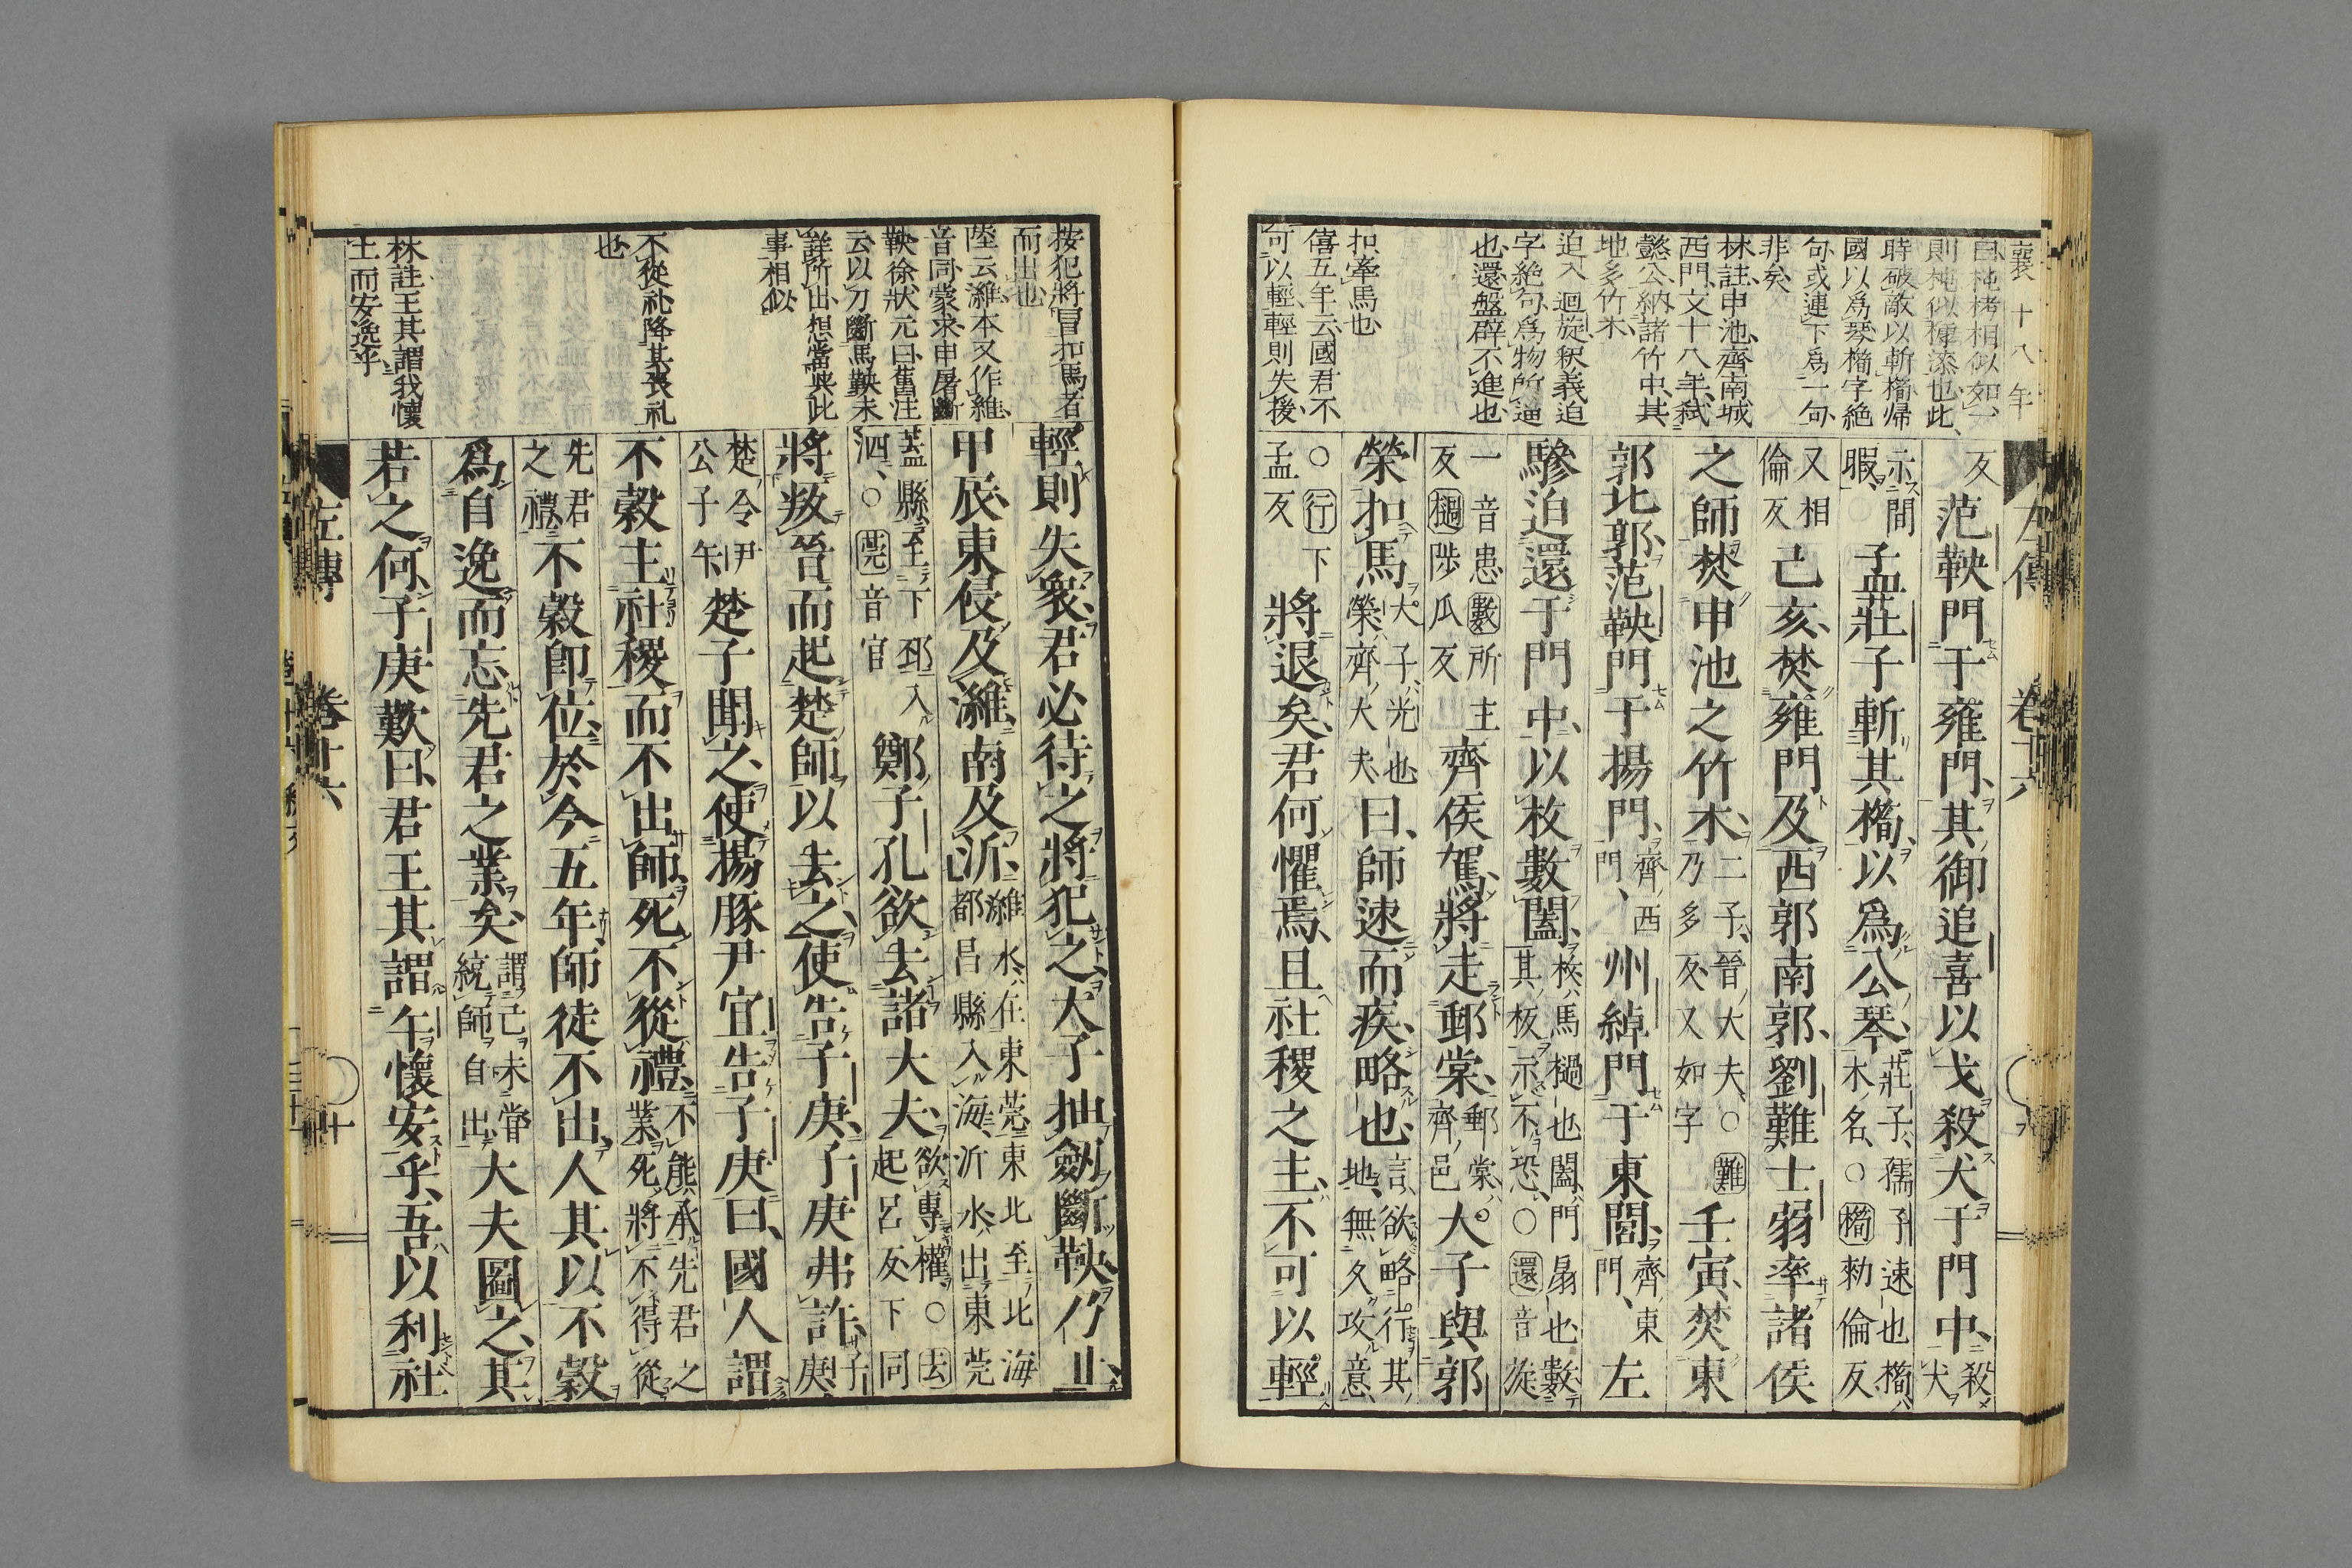 襄十八年
左傳
卷十六
則杶似樗漆也此
時破敵以斬橁帰
國以爲琴橁字絶
句或連下爲一句
非矣
林註申池齊南城
西門文十八年弑
懿公納諸竹中其
地多竹木
迫入迴旋釈義迫
字絶句爲物所逼
也還盤辟不進也
扣牽馬也
僖五年云國君不
可以輕輕則失後
反范鞅門于雍門其御追喜以戈殺犬于門中殺犬
示間暇孟莊子斬其橁以爲公琴莊子孺子速也橁木名○橁勑倫反
又相倫反己亥焚雍門及西郭南郭劉難士弱率諸侯
之師焚申池之竹木二子晉大夫○難乃多反又如字壬寅焚東
郭北郭范鞅門于揚門齊西門州綽門于東閭齊東門左
驂迫還于門中以枚數闔枚馬檛也闔門扇也數其板示不恐○還音旋
一音患數所主反檛陟瓜反齊侯駕將走郵棠郵棠齊邑大子與郭
榮扣馬大子光也榮齊大夫曰師速而疾略也言欲略行其地無久攻意
○行下孟反將退矣君何懼焉且社稷之主不可以輕
按犯將冒扣馬者
而出也
陸云濰本又作維
音同蒙求申屠斷
鞅徐狀元曰舊注
云以刀斷馬鞅未
詳所出想當與此
事相似
不從礼降其喪礼
也
林註王其謂我懷
土而安逸乎
輕則失衆君必待之將犯之大子抽劒斷鞅乃止
甲辰東侵及濰南及沂濰水在東莞東北至北海都昌縣入海沂水出東莞
蓋縣至下邳入泗○莞音官鄭子孔欲去諸大夫欲專權○去起呂反下同
將叛晉而起楚師以去之使告子庚子庚弗許子庚
楚令尹公子午楚子聞之使揚豚尹宜告子庚曰國人謂
不穀主社稷而不出師死不從禮不能承先君之業死將不得從
先君之禮不穀卽位於今五年師徒不出人其以不穀
爲自逸而忘先君之業矣謂己未嘗統師自出大夫圖之其
若之何子庚歎曰君王其謂午懷安乎吾以利社
左傳
卷十六
十